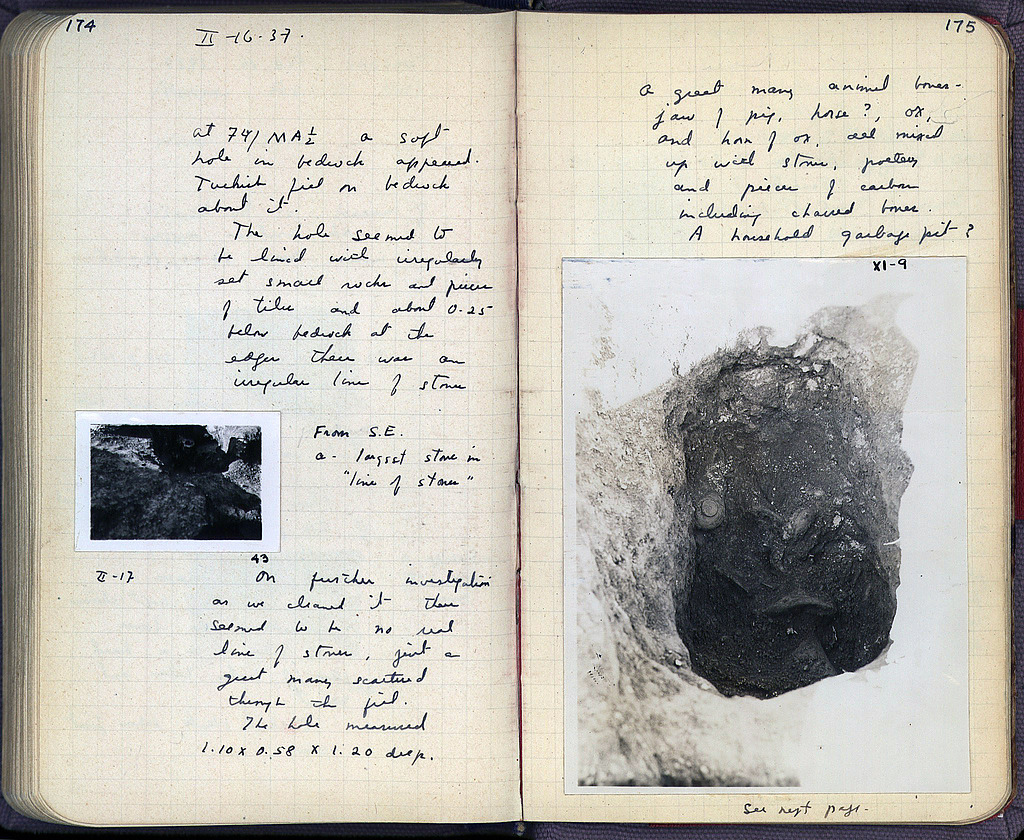 174
II-16-37.
at 74/MA½ a soft
hole in bedrock appeared.
Turkish fill on bedrock
about it.
The hole seemed to
be lined with irregularly
set small rocks and pieces
of tiles and about 0.25
below bedrock at the
edges there was an
irregular line of stones
From S.E.
a - largest stone in
"line of stones"
43
II-17
On further investigation
as we cleaned it there
seemed to be no real
line of stones, just a
great many scattered
through the fill.
The hole measured
1.10 x 0.58 x 1.20 deep.
175
A great many animal bones-
jaw of pig, horse?, ox,
and horn of ox, all mixed
up with stones, pottery
and pieces of carbon
including charred bones.
A household garbage pit?
XI-9
See next page-